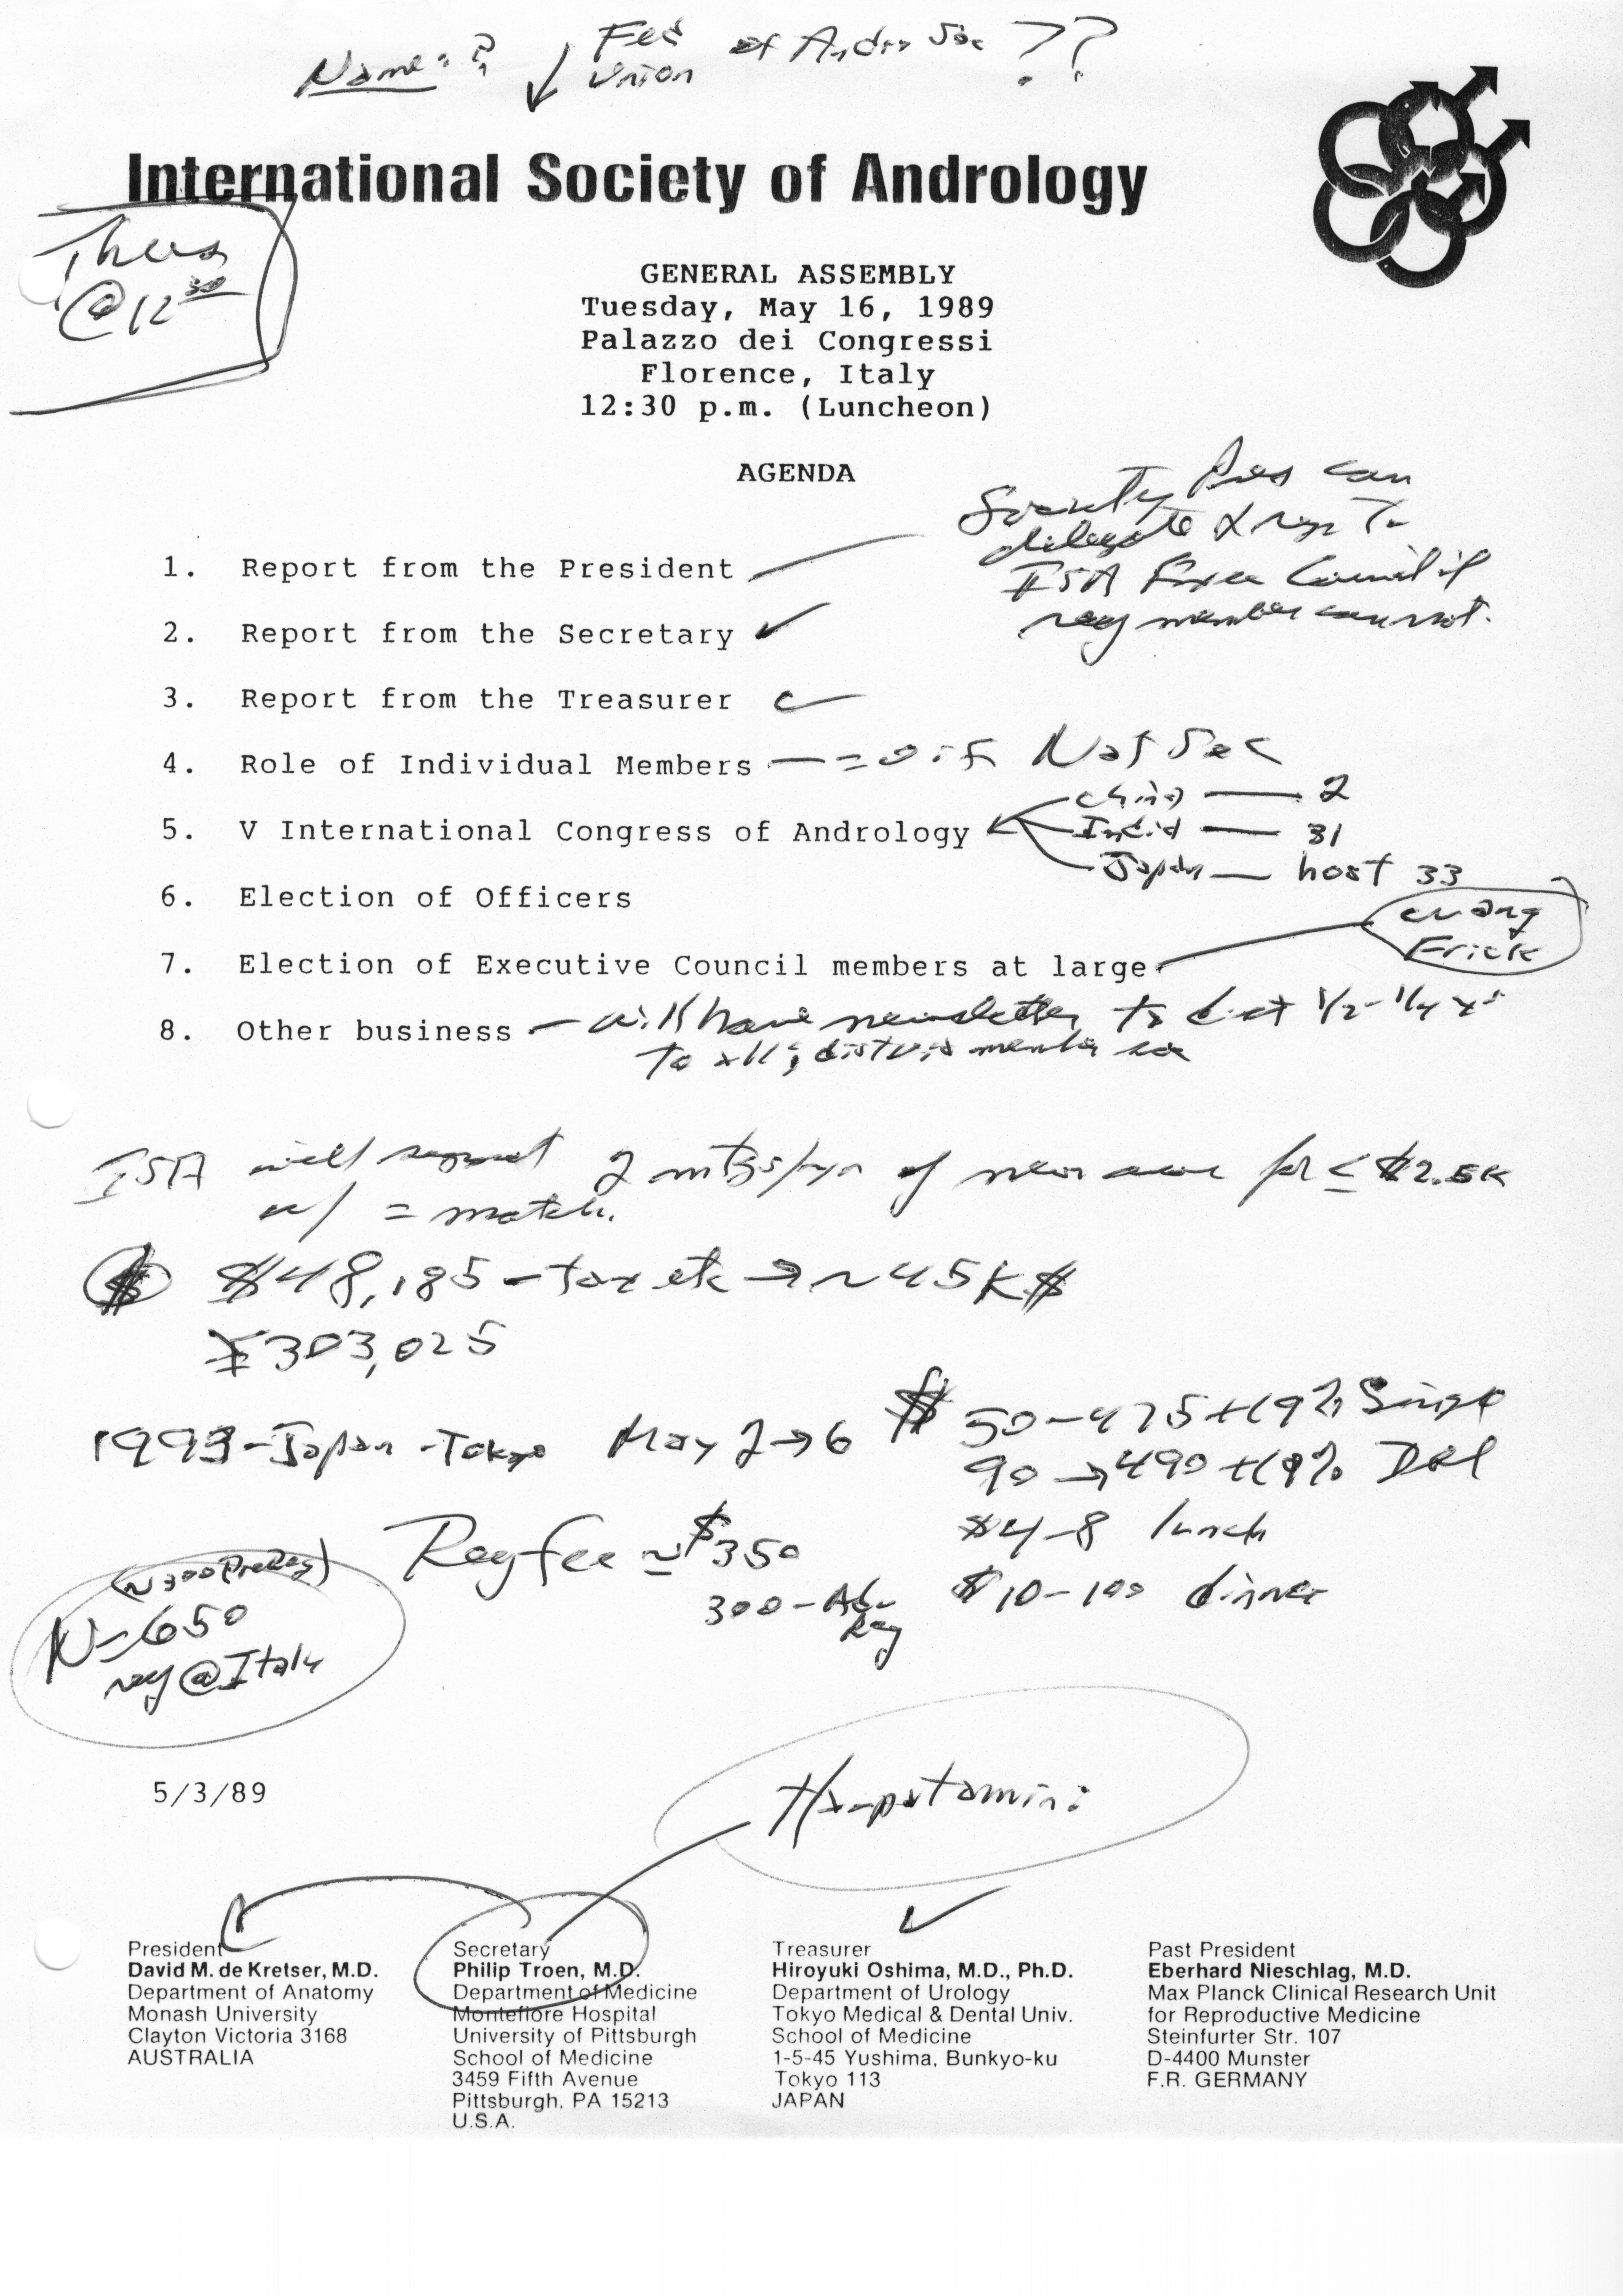 Name: ? ↓ Fed of Andro Soc ??
Union
International Society of Andrology
Thurs
@ 12 30
GENERAL ASSEMBLY
Tuesday, May 16, 1989
Palazzo dei Congressi
Florence, Italy
12:30 p.m. (Luncheon)
AGENDA
Society Pres can
delegate
ISA Exec Council if
member cannot.
1. Report from the President
2. Report from the Secretary ✓
3. Report from the Treasurer
4. Role of Individual Members — = Nat Soc
China — 2
5. V International Congress of Andrology India — 31
Japan — host 33
6. Election of Officers
Wang
Frick
7. Election of Executive Council members at large
8. Other business — will have newsletter to 1/2 - 1/4
to all;
ISA will support 2 mtgs/yr of for ≤ $2.5K
w/ = match.
$ $48,185 - tax etc → ~45K$
¥303,025
1993 - Japan - Tokyo May 2→6 $ 50-475 +19% Single
90 → 490 +19% Dbl
$4-8 lunch
$10-100 dinner
Reg fee ≃ $350
300 -
Reg
(~300 PreReg)
N=650
reg @ Italy
5/3/89
President
David M. de Kretser, M.D.
Department of Anatomy
Monash University
Clayton Victoria 3168
AUSTRALIA
Secretary
Philip Troen, M.D.
Department of Medicine
Montefiore Hospital
University of Pittsburgh
School of Medicine
3459 Fifth Avenue
Pittsburgh, PA 15213
U.S.A.
Treasurer
Hiroyuki Oshima, M.D., Ph.D.
Department of Urology
Tokyo Medical & Dental Univ.
School of Medicine
1-5-45 Yushima, Bunkyo-ku
Tokyo 113
JAPAN
Past President
Eberhard Nieschlag, M.D.
Max Planck Clinical Research Unit
for Reproductive Medicine
Steinfurter Str. 107
D-4400 Munster
F.R. GERMANY